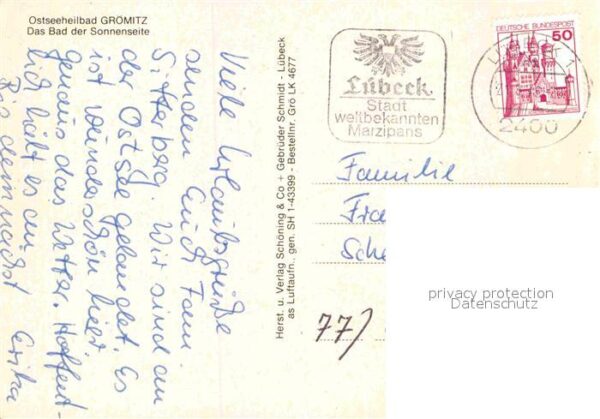 Ostseeheilbad GRÖMITZ
Das Bad der Sonnenseite
Viele Urlaubsgrüße
senden Euch Fam.
Sitterberg. Wir sind an
der Ostsee gelandet. Es
ist wunderschön hier
genau das Wetter. Hoffent-
lich hält es an.
Bis demnächst Erika
Herst. u. Verlag Schöning & Co + Gebrüder Schmidt - Lübeck
as Luftaufn. gen. SH 1-43399 - Bestellnr. Grö LK 4677
Lübeck
Stadt
weltbekannten
Marzipans
DEUTSCHE BUNDESPOST
50
2400
Familie
Fra
Sche
77)
privacy protection
Datenschutz